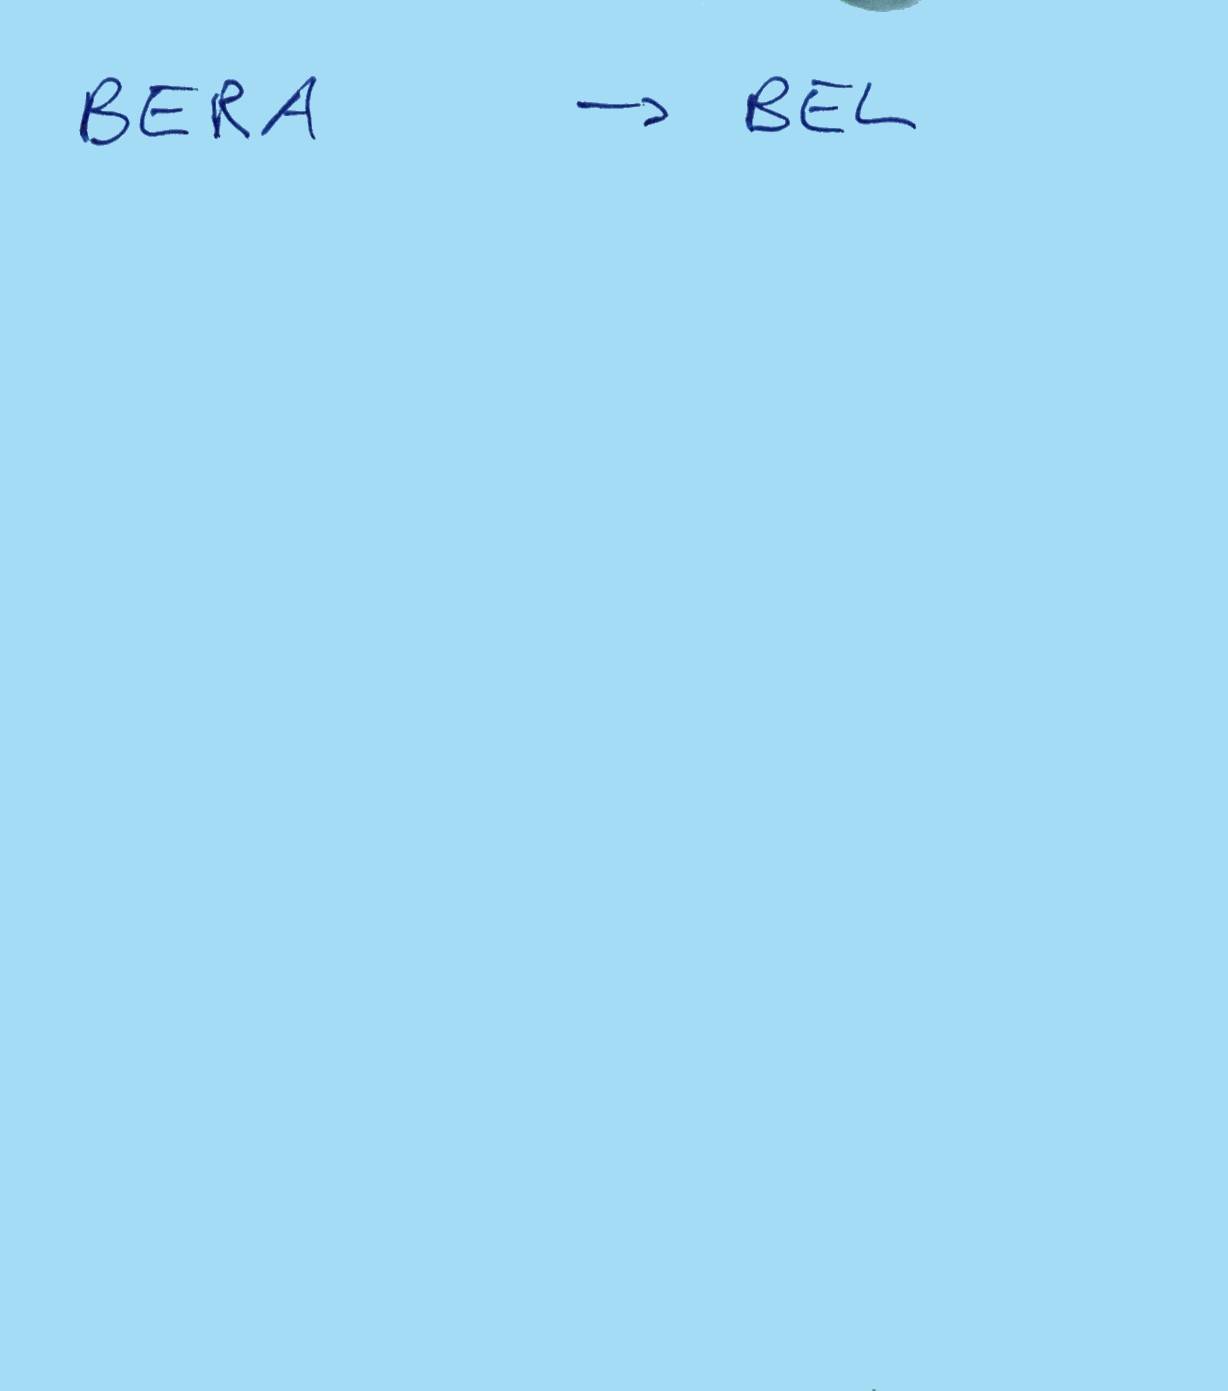 BERA → BEL